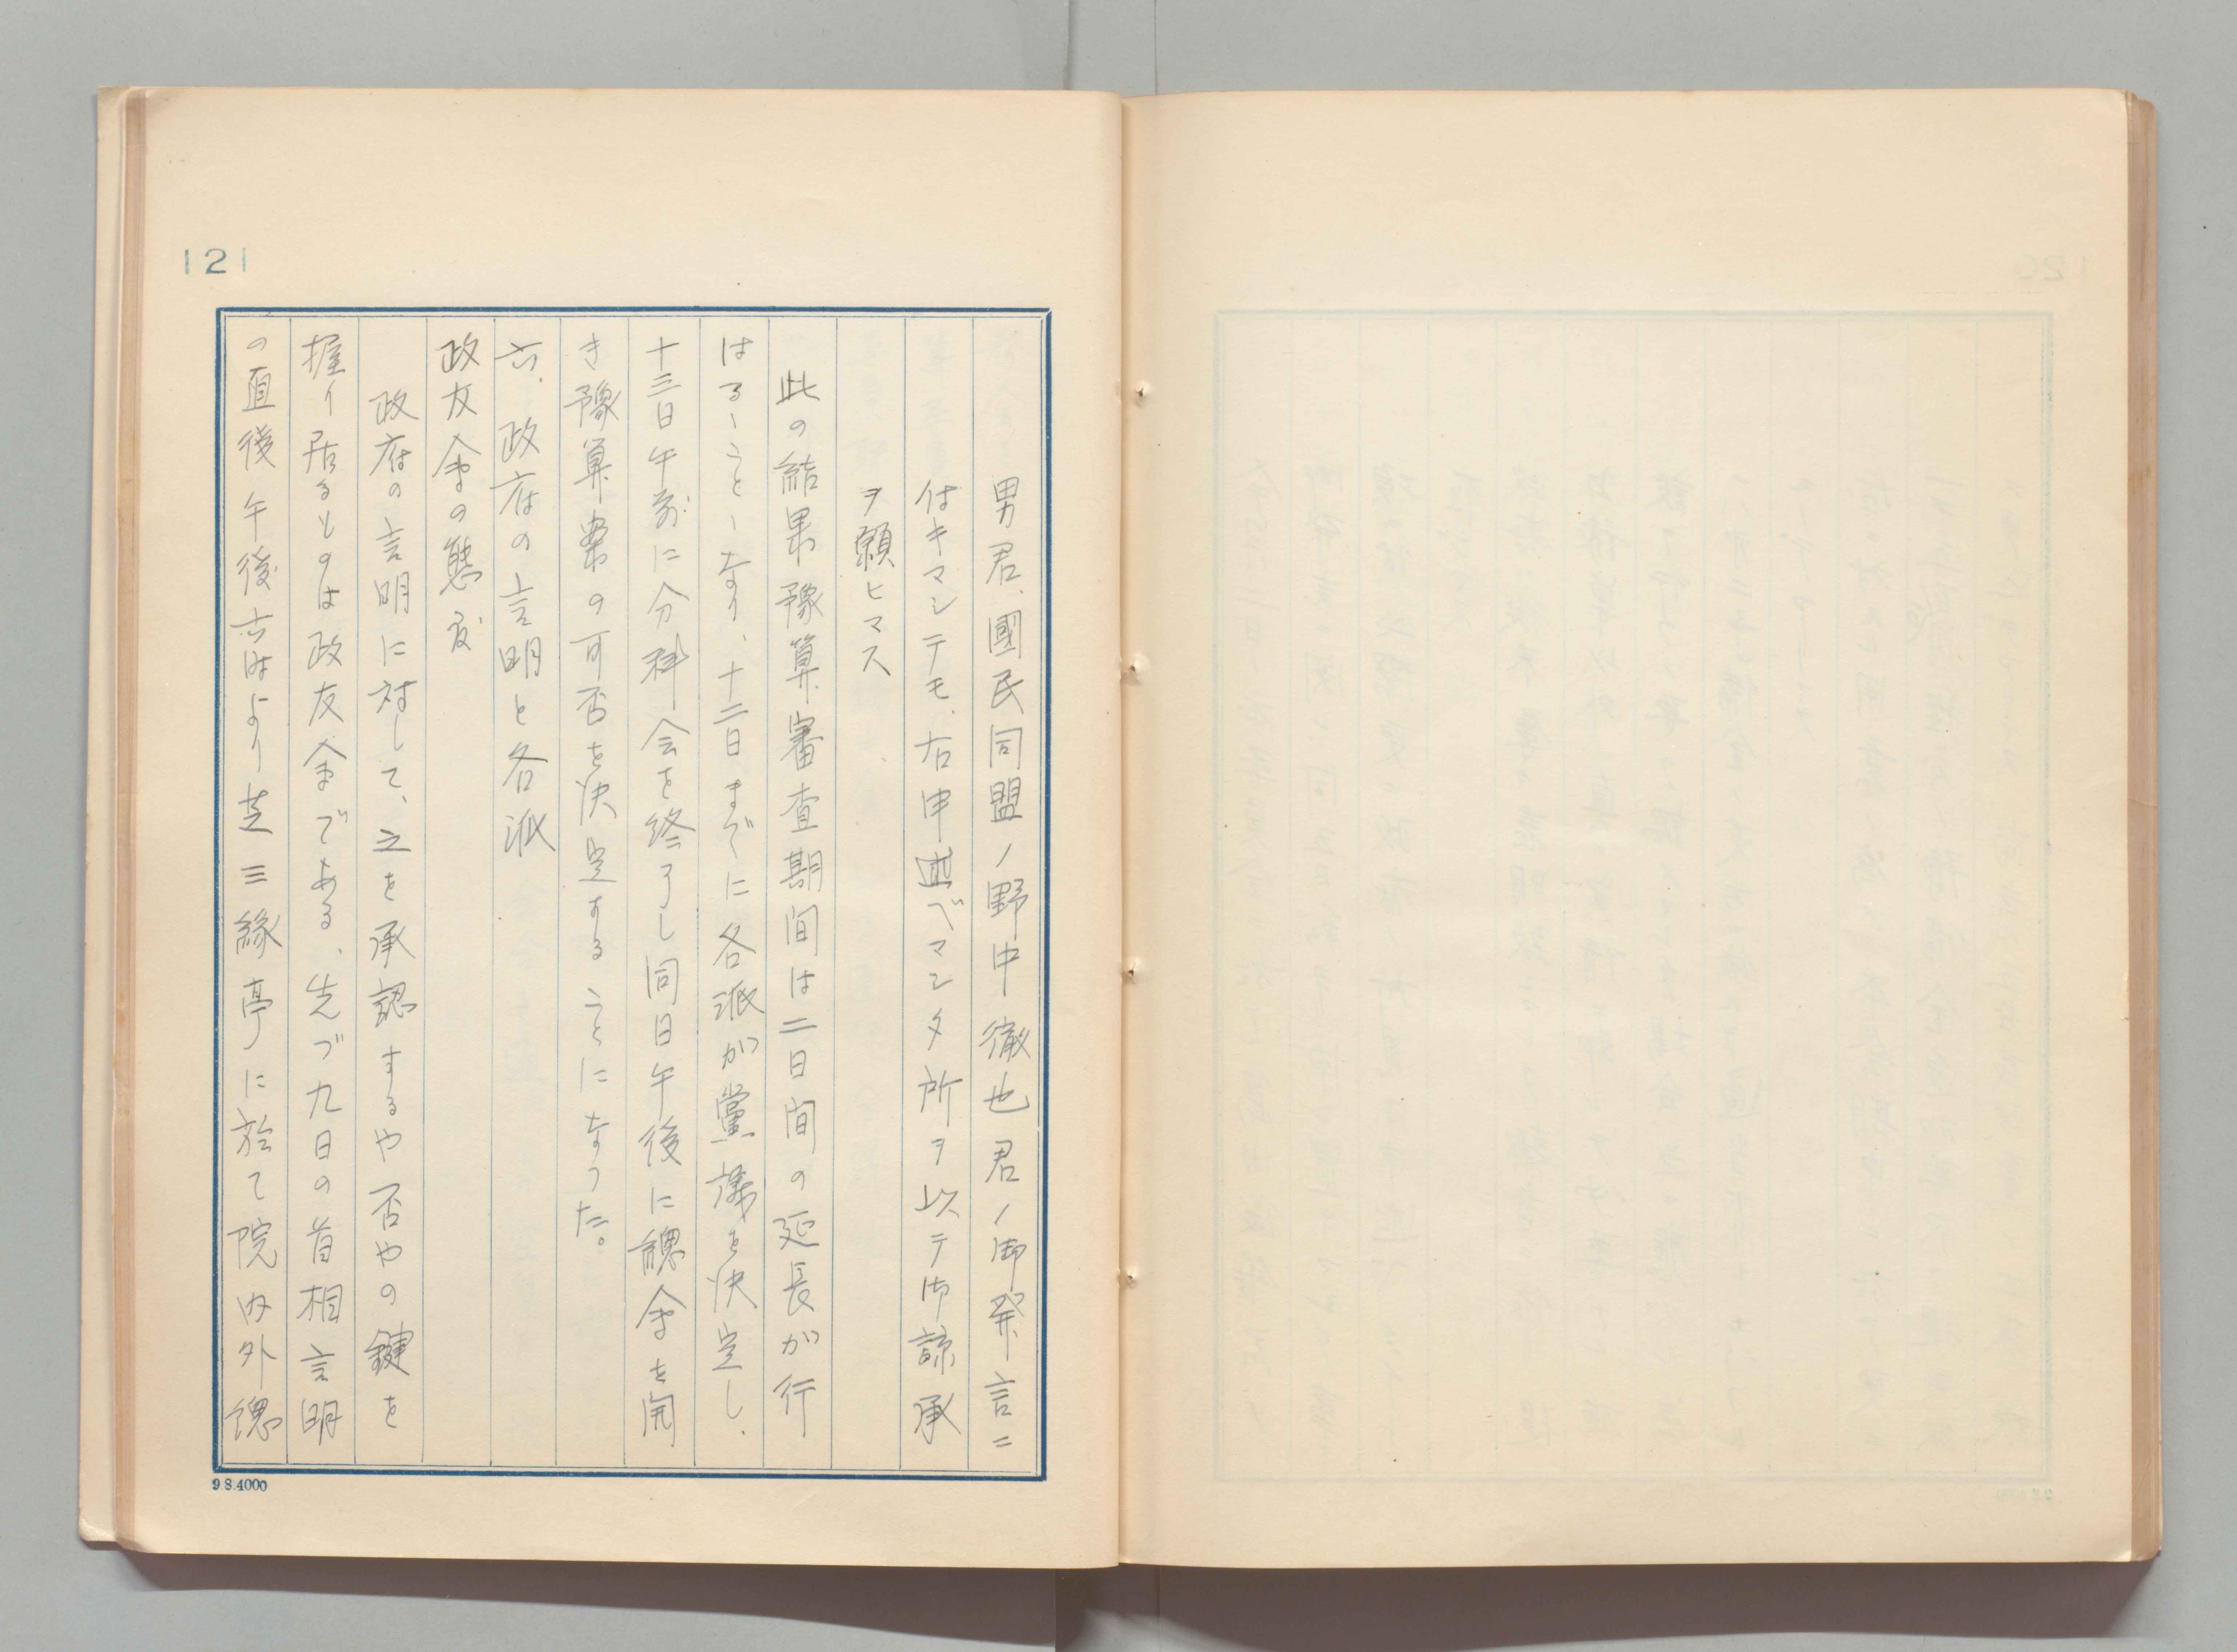 121
男君、國民同盟ノ野中徹也君ノ御発言ニ
付キマシテモ、右申述ベマシタ所ヲ以テ御諒承
ヲ願ヒマス
此の結果豫算審査期間は二日間の延長が行
はるゝことゝなり、十二日までに各派が黨議を決定し、
十三日午前に分科会を終了し同日午後に總会を開
き豫算案の可否を決定することになった。
六、政府の言明と各派
政友会の態度
政府の言明に対して、之を承認するや否やの鍵を
握り居るものは政友会である、先づ九日の首相言明
の直後午後六時より芝三緣亭に於て院内外總
9.8.4000